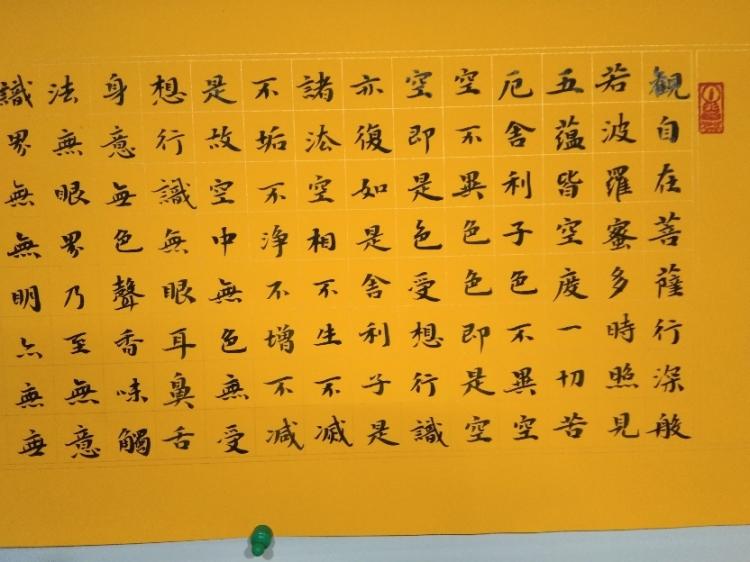 観自在菩薩行深般
若波羅蜜多時照見
五蘊皆空度一切苦
厄舍利子色不異空
空不異色色即是空
空即是色受想行識
亦復如是舍利子是
諸法空相不生不滅
不垢不淨不增不減
是故空中無色無受
想行識無眼耳鼻舌
身意無色聲香味觸
法無眼界乃至無意
識界無無明亦無無